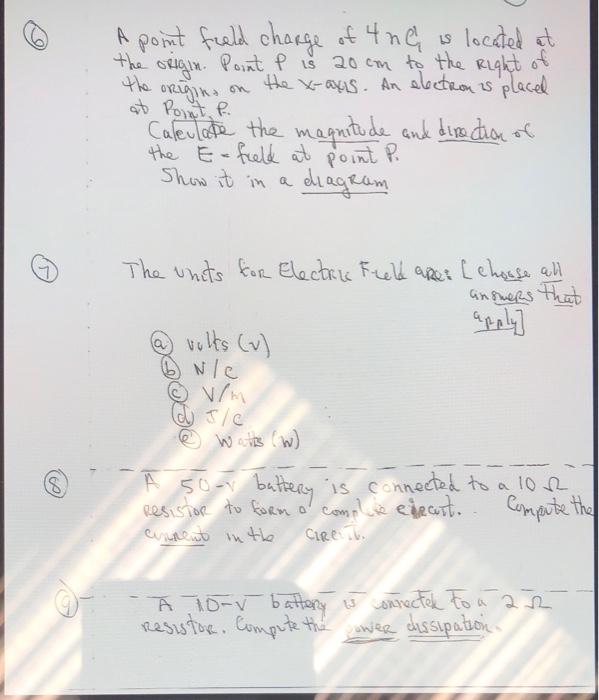 6 A point field charge of 4 nC is located at
the origin. Point P is 20 cm to the Right of
the origin, on the x-axis. An electron is placed
at Point P.
Calculate the magnitude and direction of
the E-field at point P.
Show it in a diagram
7 The units for Electric Field are: [choose all
answers that
apply]
a volts (v)
b N/C
c V/m
d J/C
e Watts (W)
8 A 50-V battery is connected to a 10 Ω
resistor to form a complete circuit. Compute the
current in the circuit.
9 A 10-V battery is connected to a 2 Ω
resistor. Compute the power dissipation.